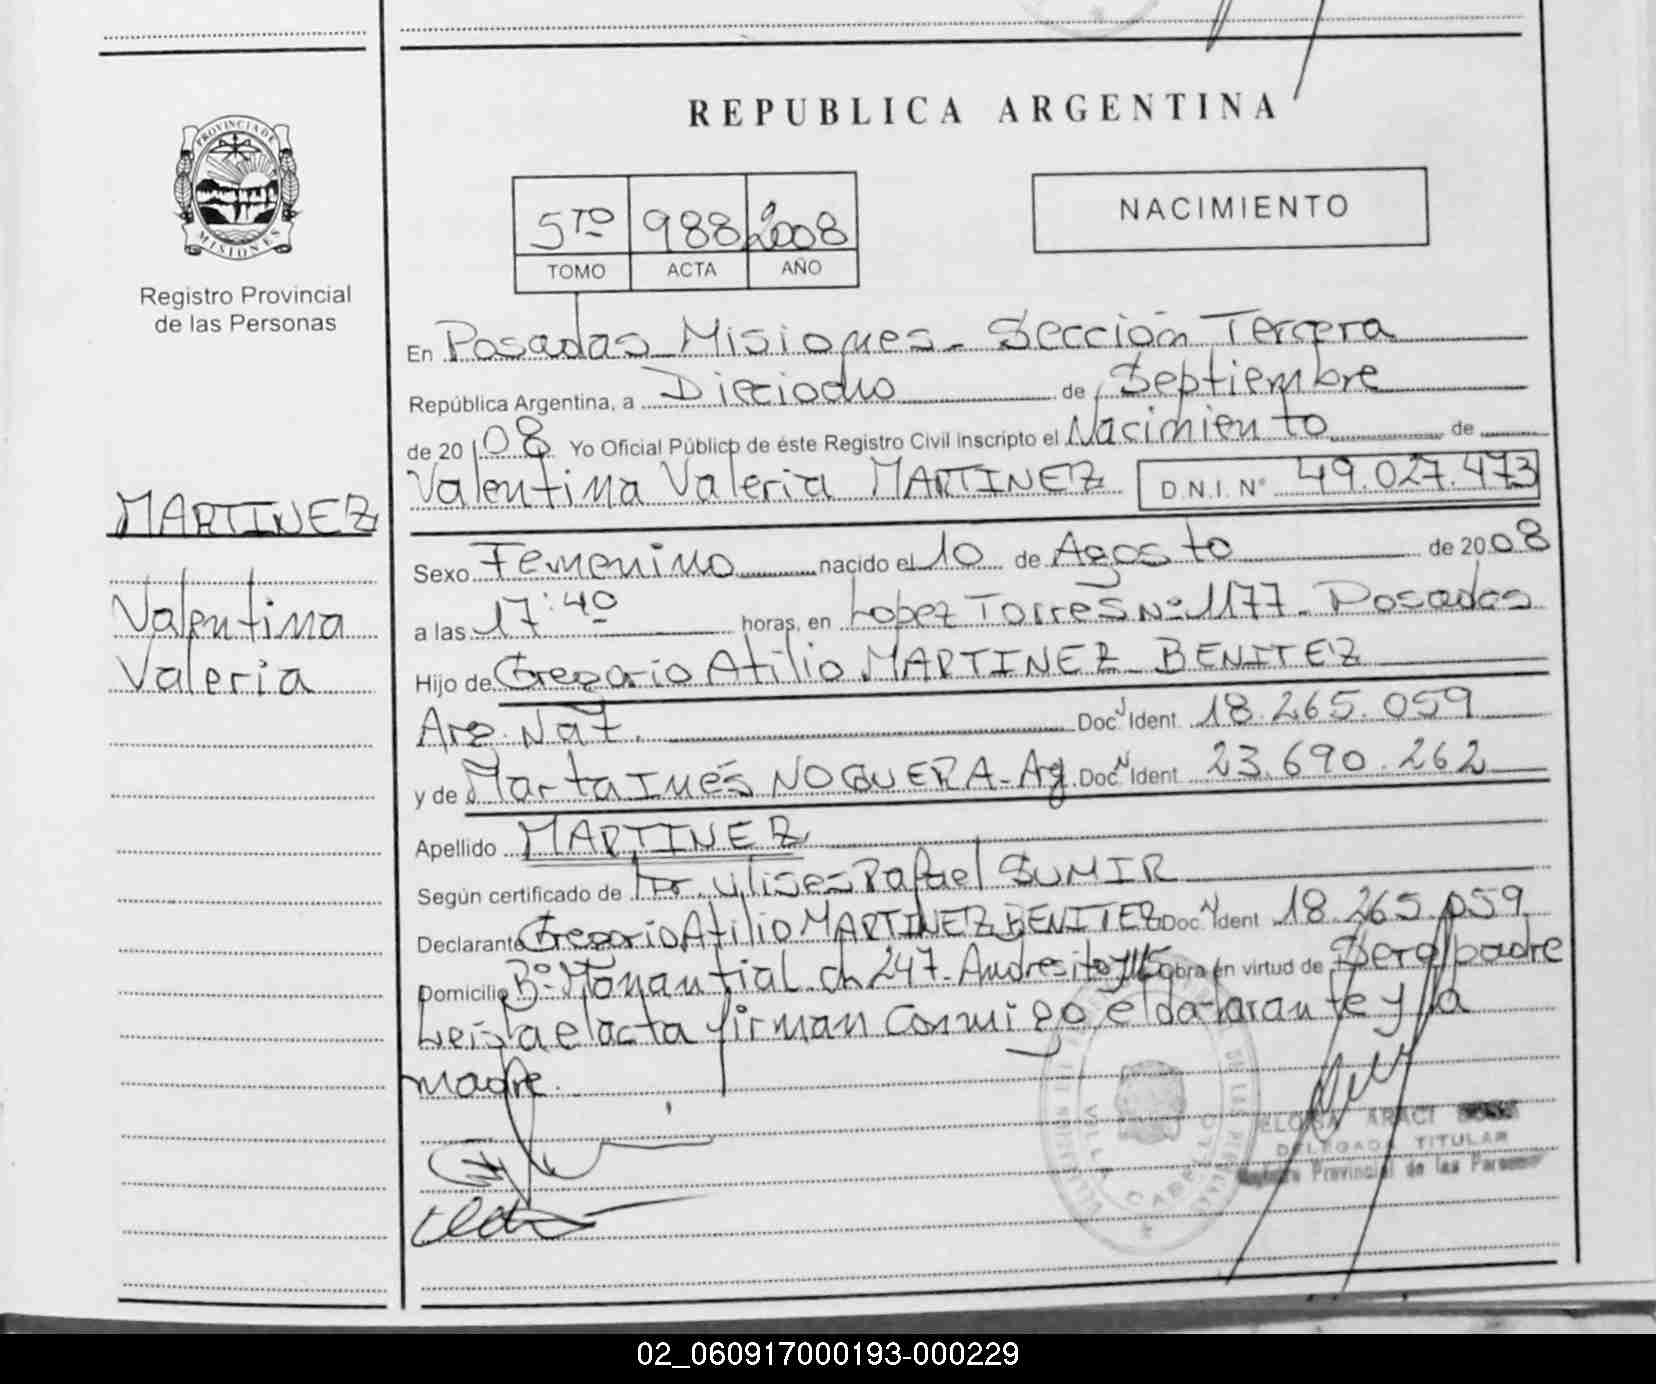 REPUBLICA ARGENTINA
PROVINCIA DE
MISIONES
Registro Provincial
de las Personas
5TO 988 2008
TOMO ACTA AÑO
NACIMIENTO
En Posadas Misiones - Sección Tercera
República Argentina, a Dieciocho de Septiembre
de 20 08 Yo Oficial Público de éste Registro Civil inscripto el Nacimiento de
Valentina Valeria MARTINEZ D.N.I. N° 49.027.473
MARTINEZ
Valentina
Valeria
Sexo Femenino nacido el 10 de Agosto de 20 08
a las 17:40 horas, en Lopez Torres Nº 1177 - Posadas
Hijo de Gregorio Atilio MARTINEZ BENITEZ
Arg. Nat. Doc. Ident. 18.265.059
y de Marta Inés NOGUERA - Ag Doc. Ident. 23.690.262
Apellido MARTINEZ
Según certificado de Dr. Ulises Rafael SUMIR
Declarante Gregorio Atilio MARTINEZ BENITEZ Doc. Ident 18.265.059
Domicilio Bº Manantial ch 247 - Andresito y obra en virtud de Ser el padre
Leísta el acta firman conmigo el declarante y la
madre.
VILLA CABELLO
ELOISA ARACI
DELEGADA TITULAR
Registro Provincial de las Personas
02_060917000193-000229